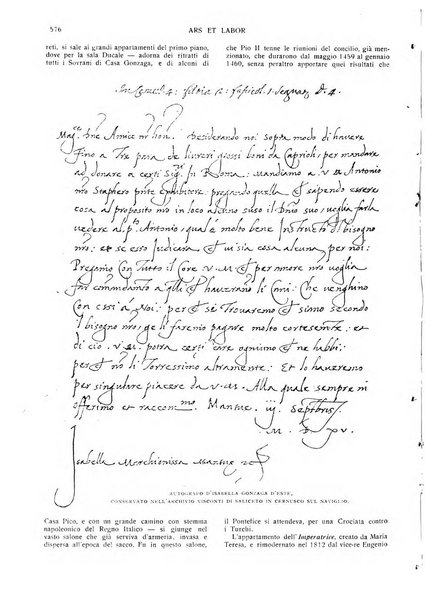 576
ARS ET LABOR
reti, si sale ai grandi appartamenti del primo piano,
dove per la sala Ducale — adorna dei ritratti di
tutti i Sovrani di Casa Gonzaga, e di alcuni di
che Pio II tenne le riunioni del concilio, già men-
zionato, che durarono dal maggio 1459 al gennaio
1460, importanti sempre apparter quei risultati che
Mag.ce Dne Amice nr hon. Desiderando noi sopra modo di havere
Fino a Tre para de livreri grossi boni da Caprioli, per mandare
ad donare a certi Sig.ri in Roma: Mandiamo a. v. m. Antonio
nro Staphero pnte exhibitore: pregando quella et sapendo essere
cosa al proposito nro in loco alcuno suso il Dnio suo, voglia farla
vedere al pto Antonio, qual è molto bene Instructo di bisogno
nro: et se esso Judicara et vi sia cosa alcuna per noi:
Pregamo Con Tutto il Core v. M. et per amore nro voglia
far commandamento a quelli et hauerano li Cani: Che venghino
Con essi a Noi: per et se Trouaremo et siano secondo
il bisogno nro, ge li faremo pagare molto cortesemente: et
di cio. v. m. potra certi care ogniuno et ne habbi:
per et noi di Torressimo altramente: Et lo haueremo
per singulare piacere da v. m. Alla quale sempre ni
offerimo et raccom.mo Mantue. iij. Septbris
M. D. xv.
Isabella Marchionissa Mantue
AUTOGRAFO D'ISABELLA GONZAGA D'ESTE,
CONSERVATO NELL'ARCHIVIO VISCONTI DI SALICETO IN CERNUSCO SUL NAVIGLIO.
Casa Pico, e con un grande camino con stemma
napoleonico del Regno Italico — si giunge nel
vasto salone che già serviva d'armeria, invasa e
dispersa all'epoca del sacco. Fu in questo salone,
il Pontefice si attendeva, per una Crociata contro
i Turchi.
L'appartamento dell'Imperatrice, creato da Maria
Teresa, e rimodernato nel 1812 dal vice-re Eugenio